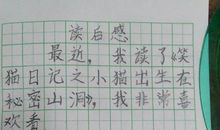 读后感
最近，我读了《笑
猫日记之小猫出生在
秘密山洞》，我非常喜
欢看